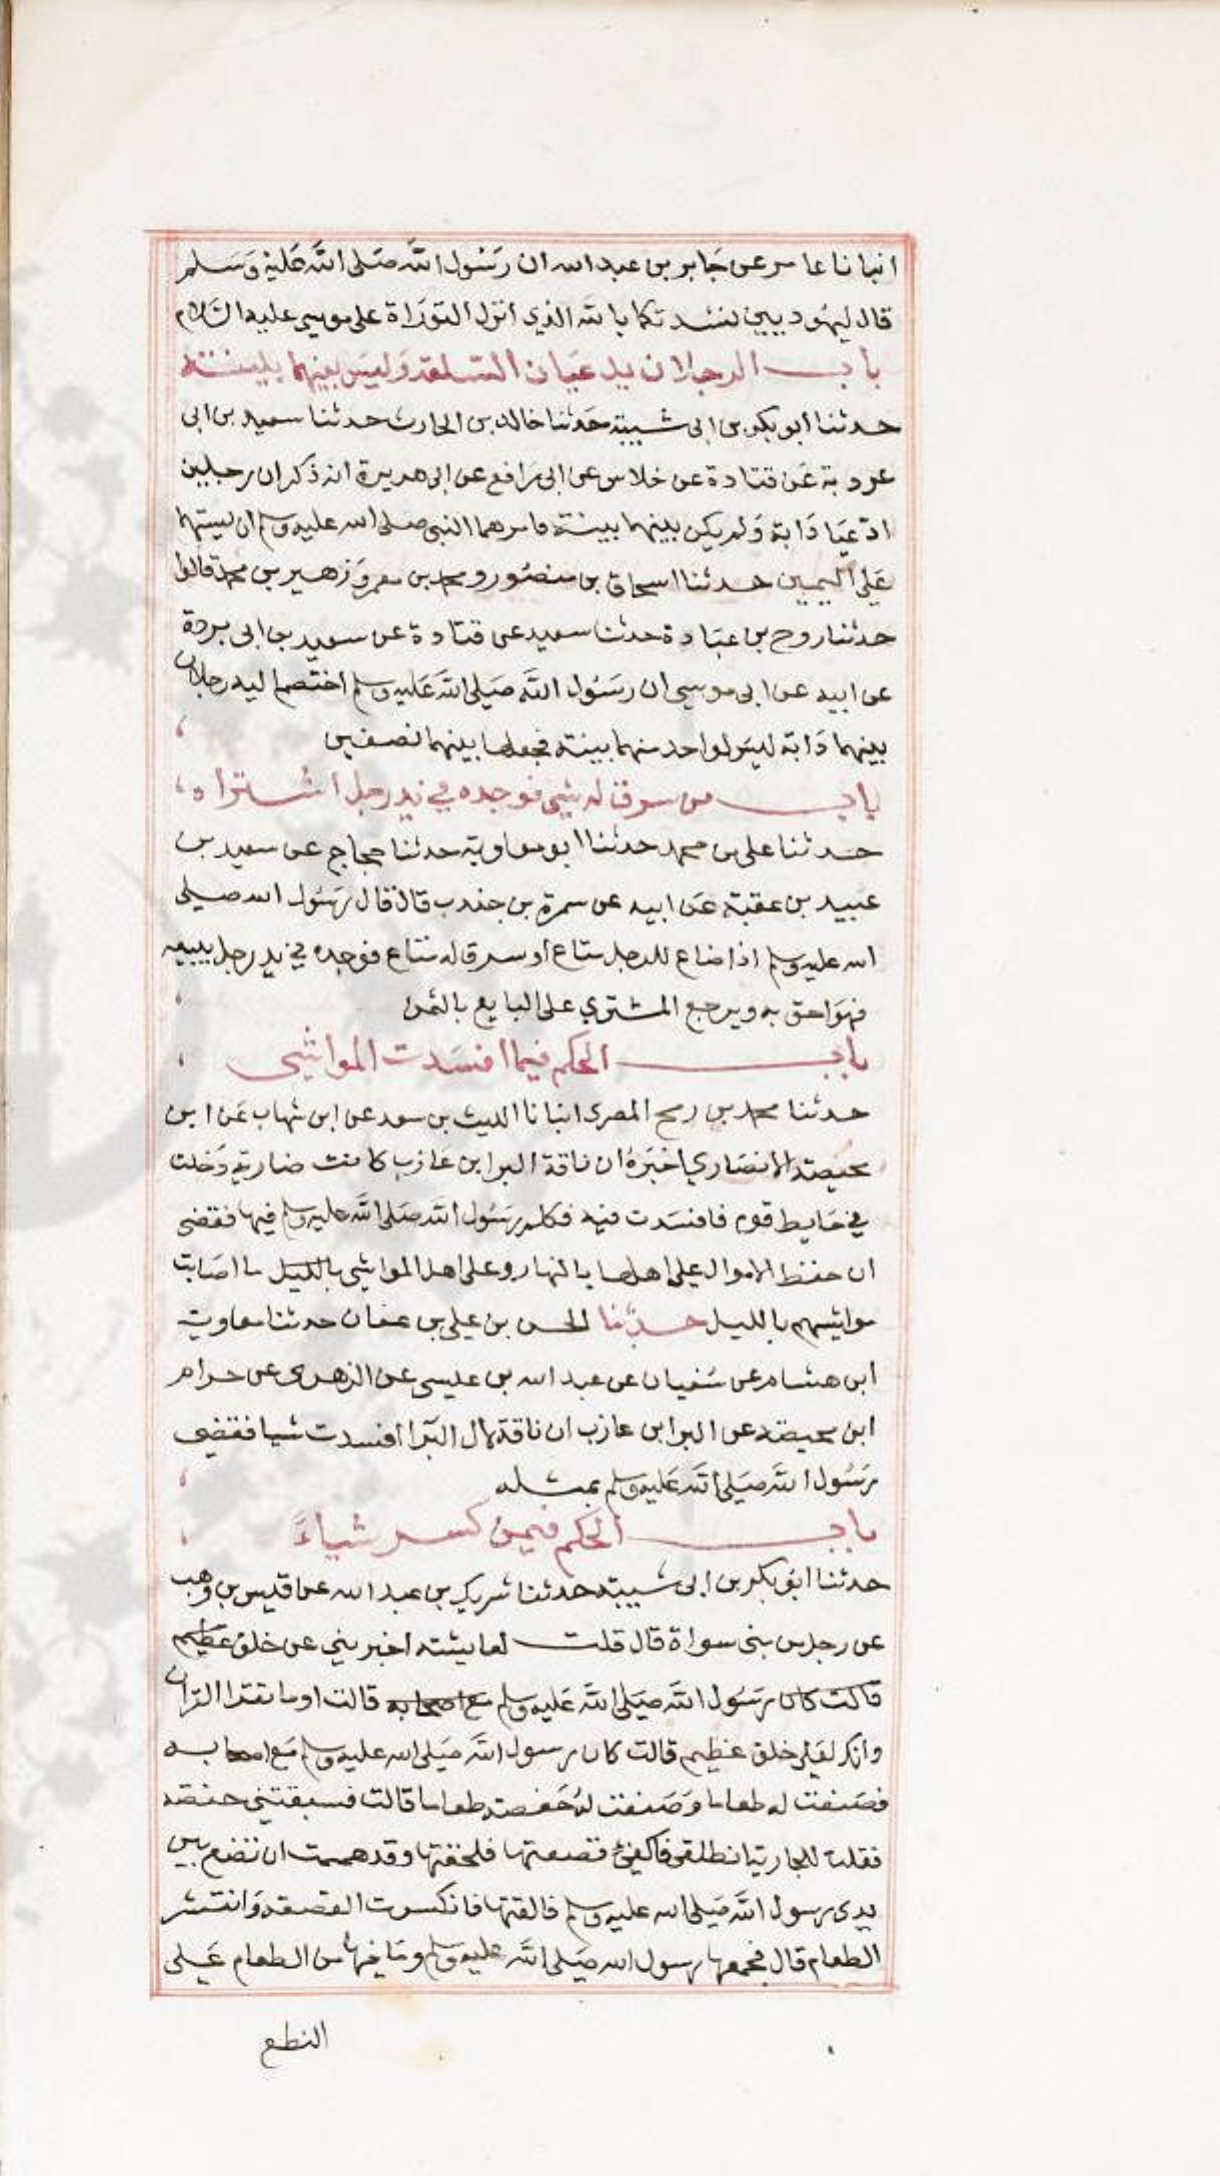 انبانا عامر عن جابر بن عبد الله ان رسول الله صلى الله عليه وسلم
قال ليهوديين نشدتكما بالله الذي انزل التوراة على موسى عليه السلام
باب الرجلان يدعيان السلعة وليس بينهما بينة
حدثنا ابو بكر بن ابى شيبة حدثنا خالد بن الحارث حدثنا سعيد بن ابى
عروبة عن قتادة عن خلاس عن ابى رافع عن ابى هريرة انه ذكر ان رجلين
ادعيا دابة ولم يكن بينهما بينة فامرهما النبى صلى الله عليه وسلم ان يستهما
على اليمين حدثنا اسحاق بن منصور ومحمد بن معمر وزهير بن محمد قالوا
حدثنا روح بن عبادة حدثنا سعيد عن قتادة عن سعيد بن ابى بردة
عن ابيه عن ابى موسى ان رسول الله صلى الله عليه وسلم اختصم اليه رجلان
بينهما دابة ليس لواحد منهما بينة فجعلها بينهما نصفين
باب من سرق له شي فوجده في يد رجل اشتراه
حدثنا على بن محمد حدثنا ابو معاوية حدثنا حجاج عن سعيد بن
عبيد بن عقبة عن ابيه عن سمرة بن جندب قال قال رسول الله صلى
الله عليه وسلم اذا ضاع للرجل متاع او سرق له متاع فوجده في يد رجل يبيعه
فهو احق به ويرجع المشتري على البايع بالثمن
باب الحكم فيما افسدت المواشي
حدثنا محمد بن رمح المصرى انبانا الليث بن سعد عن ابن شهاب عن ابن
محيصة الانصاري اخبره ان ناقة البرا بن عازب كانت ضارية دخلت
في حايط قوم فافسدت فيه فكلم رسول الله صلى الله عليه وسلم فيها فقضى
ان حفظ الاموال على اهلها بالنهار وعلى اهل المواشي بالليل ما اصابت
مواشيهم بالليل حدثنا الحسن بن علي بن عفان حدثنا معاوية
ابن هشام عن سفيان عن عبد الله بن عيسى عن الزهرى عن حرام
ابن محيصة عن البرا بن عازب ان ناقة لال البرا افسدت شيا فقضى
رسول الله صلى الله عليه وسلم بمثله
باب الحكم فيمن كسر شياء
حدثنا ابو بكر بن ابى شيبة حدثنا شريك بن عبد الله عن قيس بن وهب
عن رجل من بنى سواة قال قلت لعايشة اخبريني عن خلق عظيم
قالت كان رسول الله صلى الله عليه وسلم مع اصحابه قالت او ما تقرا القران
وانك لعلى خلق عظيم قالت كان رسول الله صلى الله عليه وسلم مع اصحابه
فصنعت له طعاما وصنعت له حفصة طعاما قالت فسبقتني حفصة
فقلت للجارية انطلقى فاكفئ قصعتها فلحقتها وقد همت ان تضع بين
يدى رسول الله صلى الله عليه وسلم فالقتها فانكسرت القصعة وانتشر
الطعام قال فجمعها رسول الله صلى الله عليه وسلم وما فيها من الطعام على
النطع